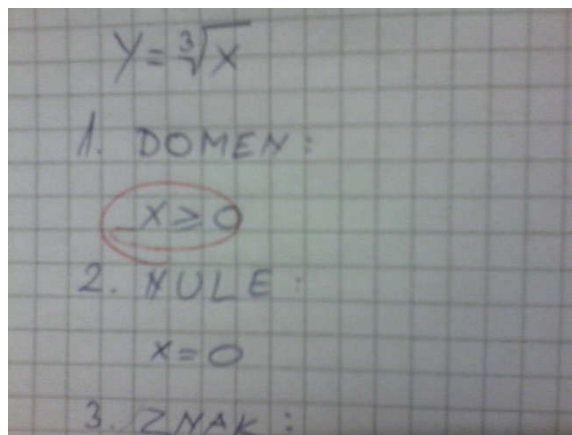 Y = ∛x
1. DOMEN:
x ≥ 0
2. NULE:
x = 0
3. ZNAK: